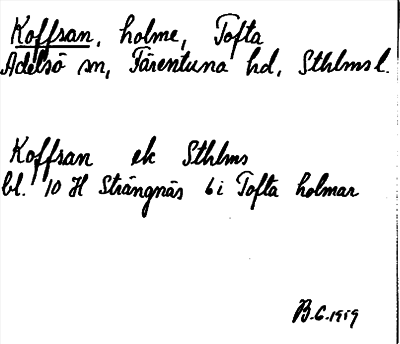 Koffsan, holme, Tofta
Adelsö sn, Färentuna hd, Sthlms l.
Koffsan ek Sthlms
bl. 10 H Strängnäs 6 i Tofta holmar
B.G. 1959